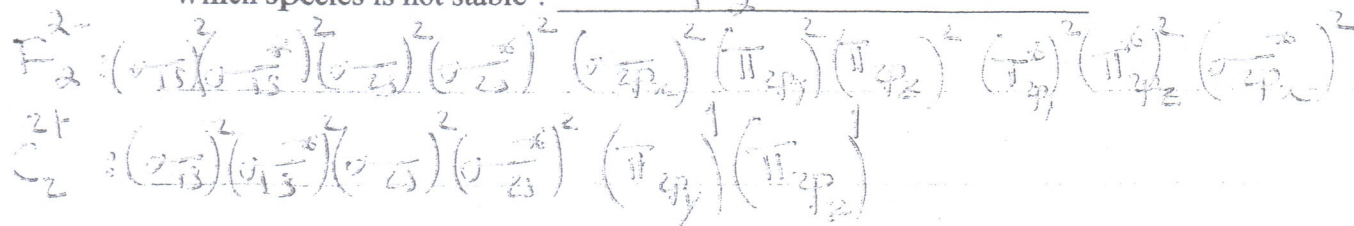 which species is not stable : F₂²⁻
F₂²⁻ : (σ1s)²(σ1s*)²(σ2s)²(σ2s*)² (σ2pₓ)²(π2py)²(π2pz)² (π*2py)²(π*2pz)²(σ*2pₓ)²
C₂²⁺ : (σ1s)²(σ1s*)²(σ2s)²(σ2s*)² (π2py)¹(π2pz)¹